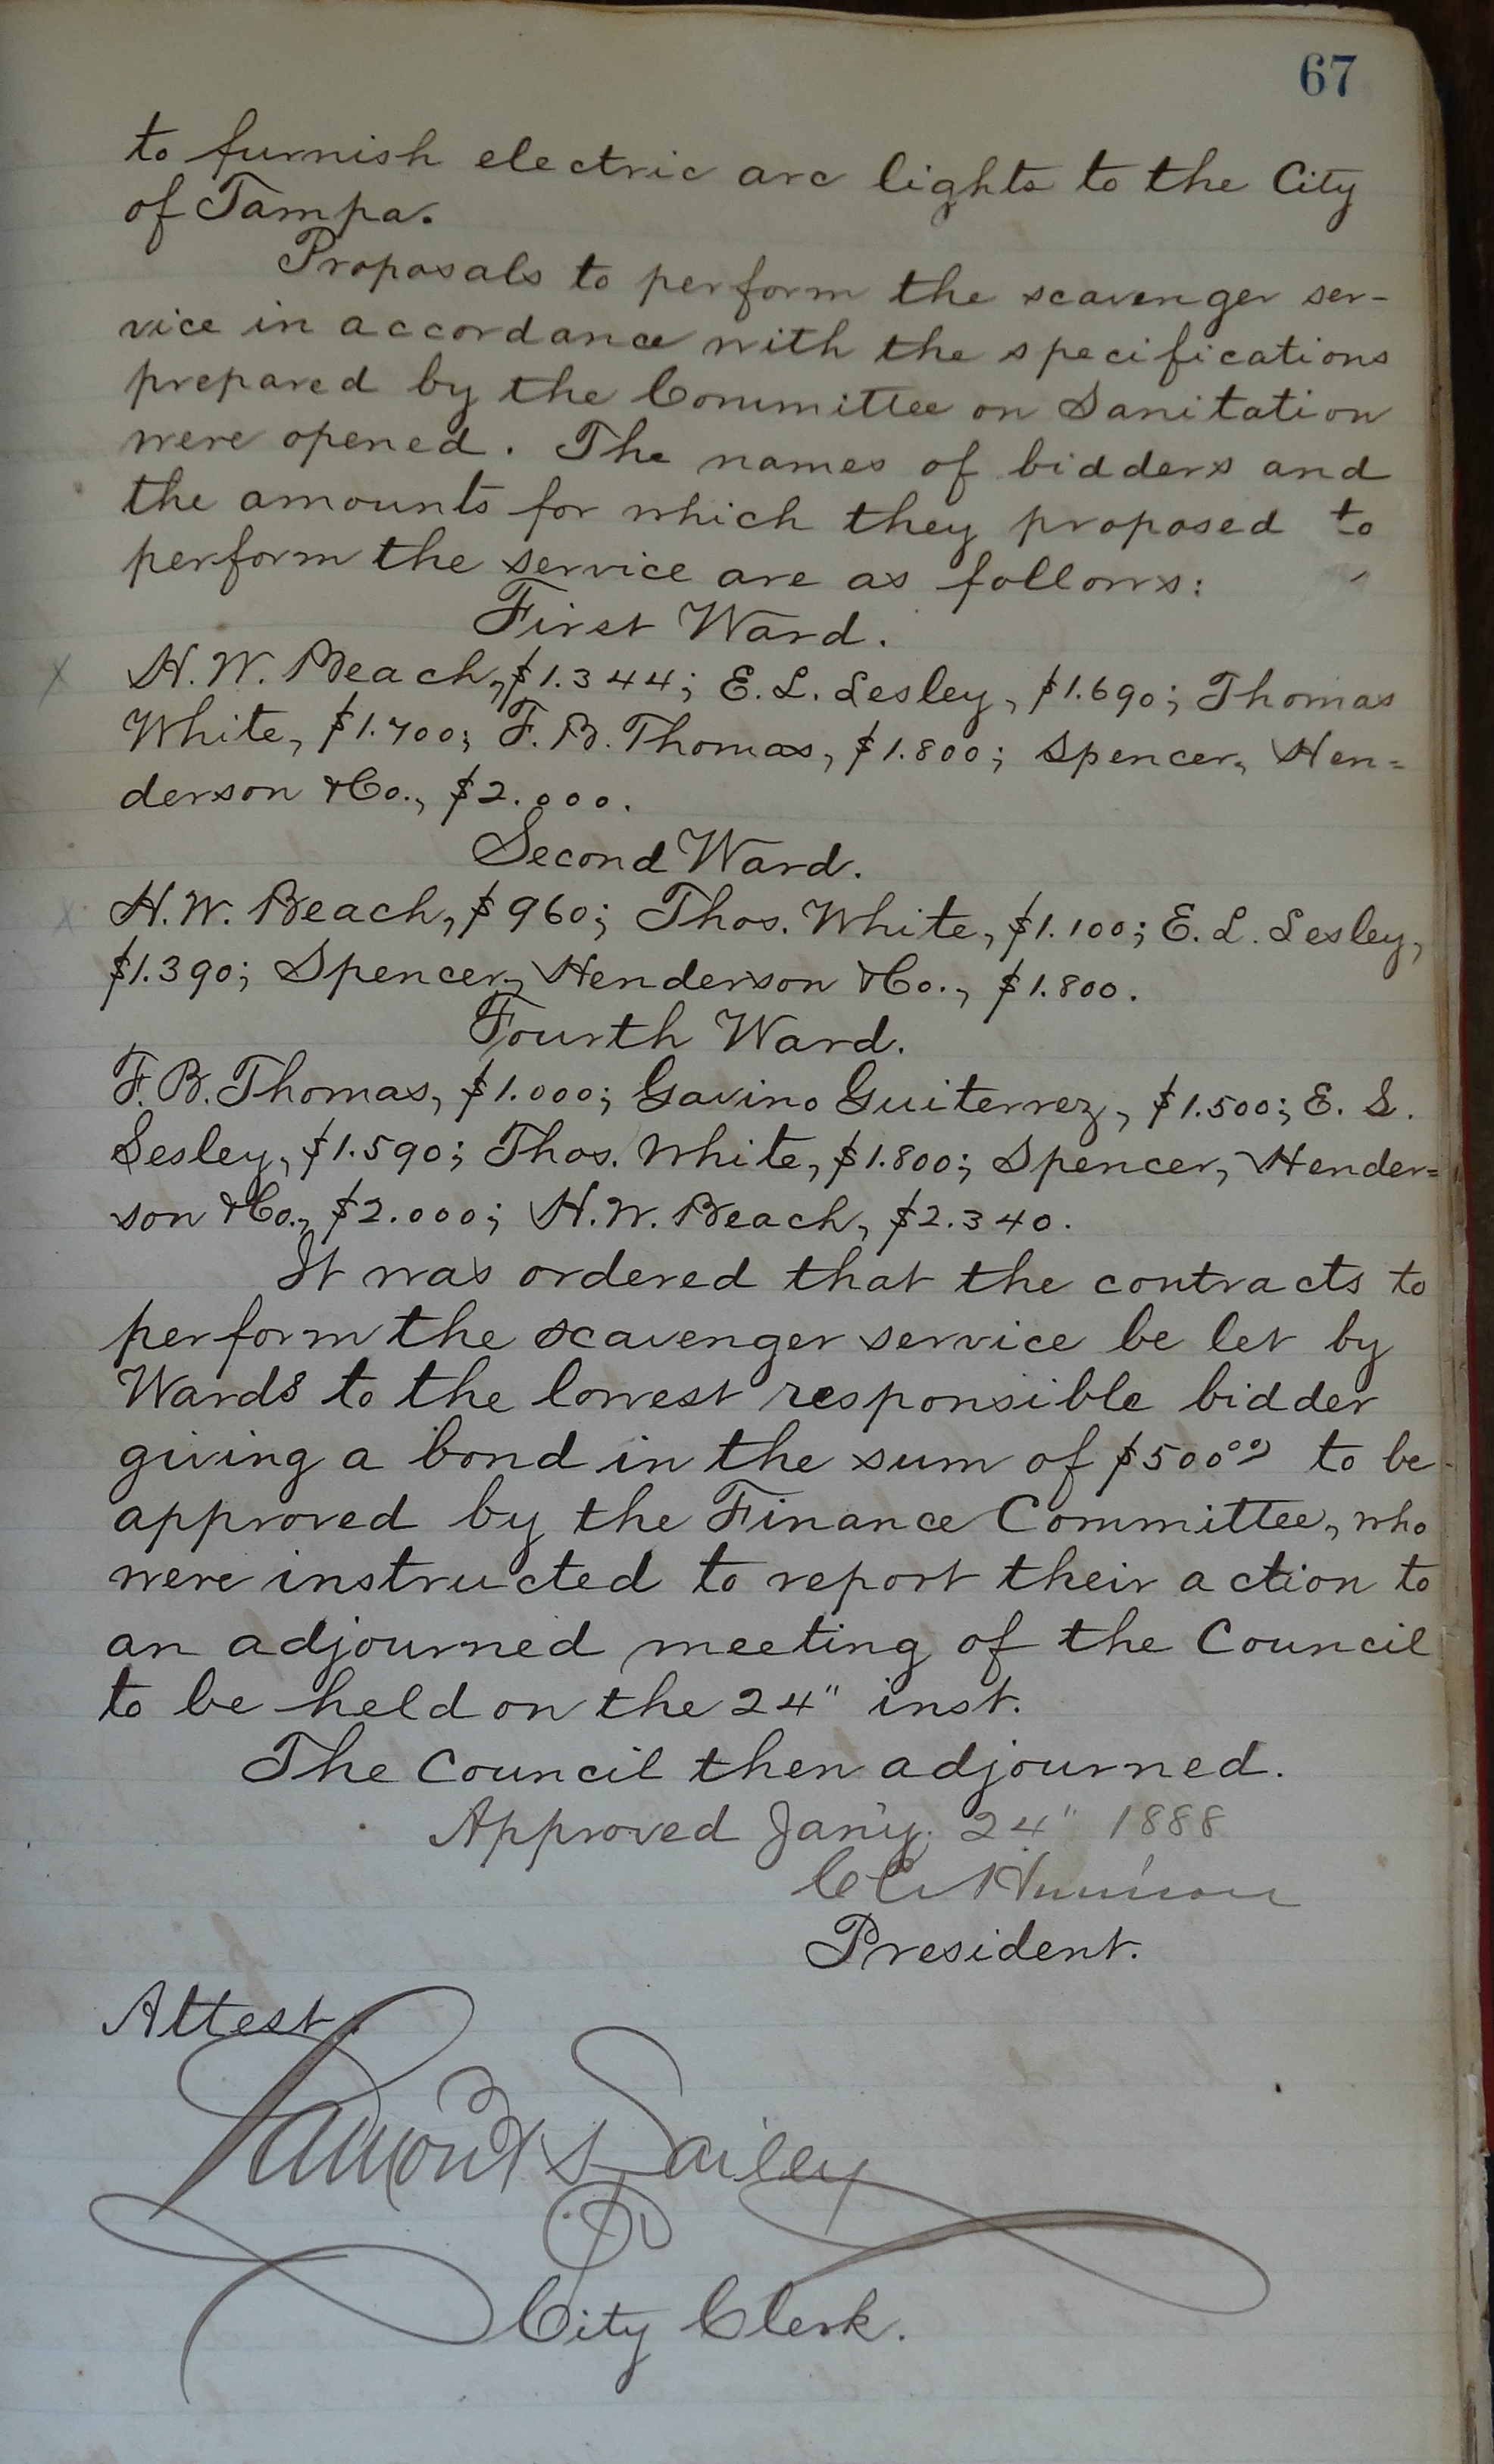 67
to furnish electric arc lights to the City
of Tampa.
Proposals to perform the scavenger ser-
vice in accordance with the specifications
prepared by the Committee on Sanitation
were opened. The names of bidders and
the amounts for which they proposed to
perform the service are as follows:
First Ward.
x H. W. Beach, $1.344; E. L. Lesley, $1.690; Thomas
White, $1.700; F. B. Thomas, $1.800; Spencer, Hen=
derson & Co., $2.000.
Second Ward.
x H. W. Beach, $960; Thos. White, $1.100; E. L. Lesley,
$1.390; Spencer, Henderson & Co., $1.800.
Fourth Ward.
F. B. Thomas, $1.000; Gavino Guiterrez, $1.500; E. L.
Lesley, $1.590; Thos. White, $1.800; Spencer, Hender=
son & Co., $2.000; H. W. Beach, $2.340.
It was ordered that the contracts to
perform the scavenger service be let by
Wards to the lowest responsible bidder
giving a bond in the sum of $500⁰⁰ to be
approved by the Finance Committee, who
were instructed to report their action to
an adjourned meeting of the Council
to be held on the 24" inst.
The Council then adjourned.
Approved Jan'y. 24" 1888
President.
Attest.
Bailey
City Clerk.